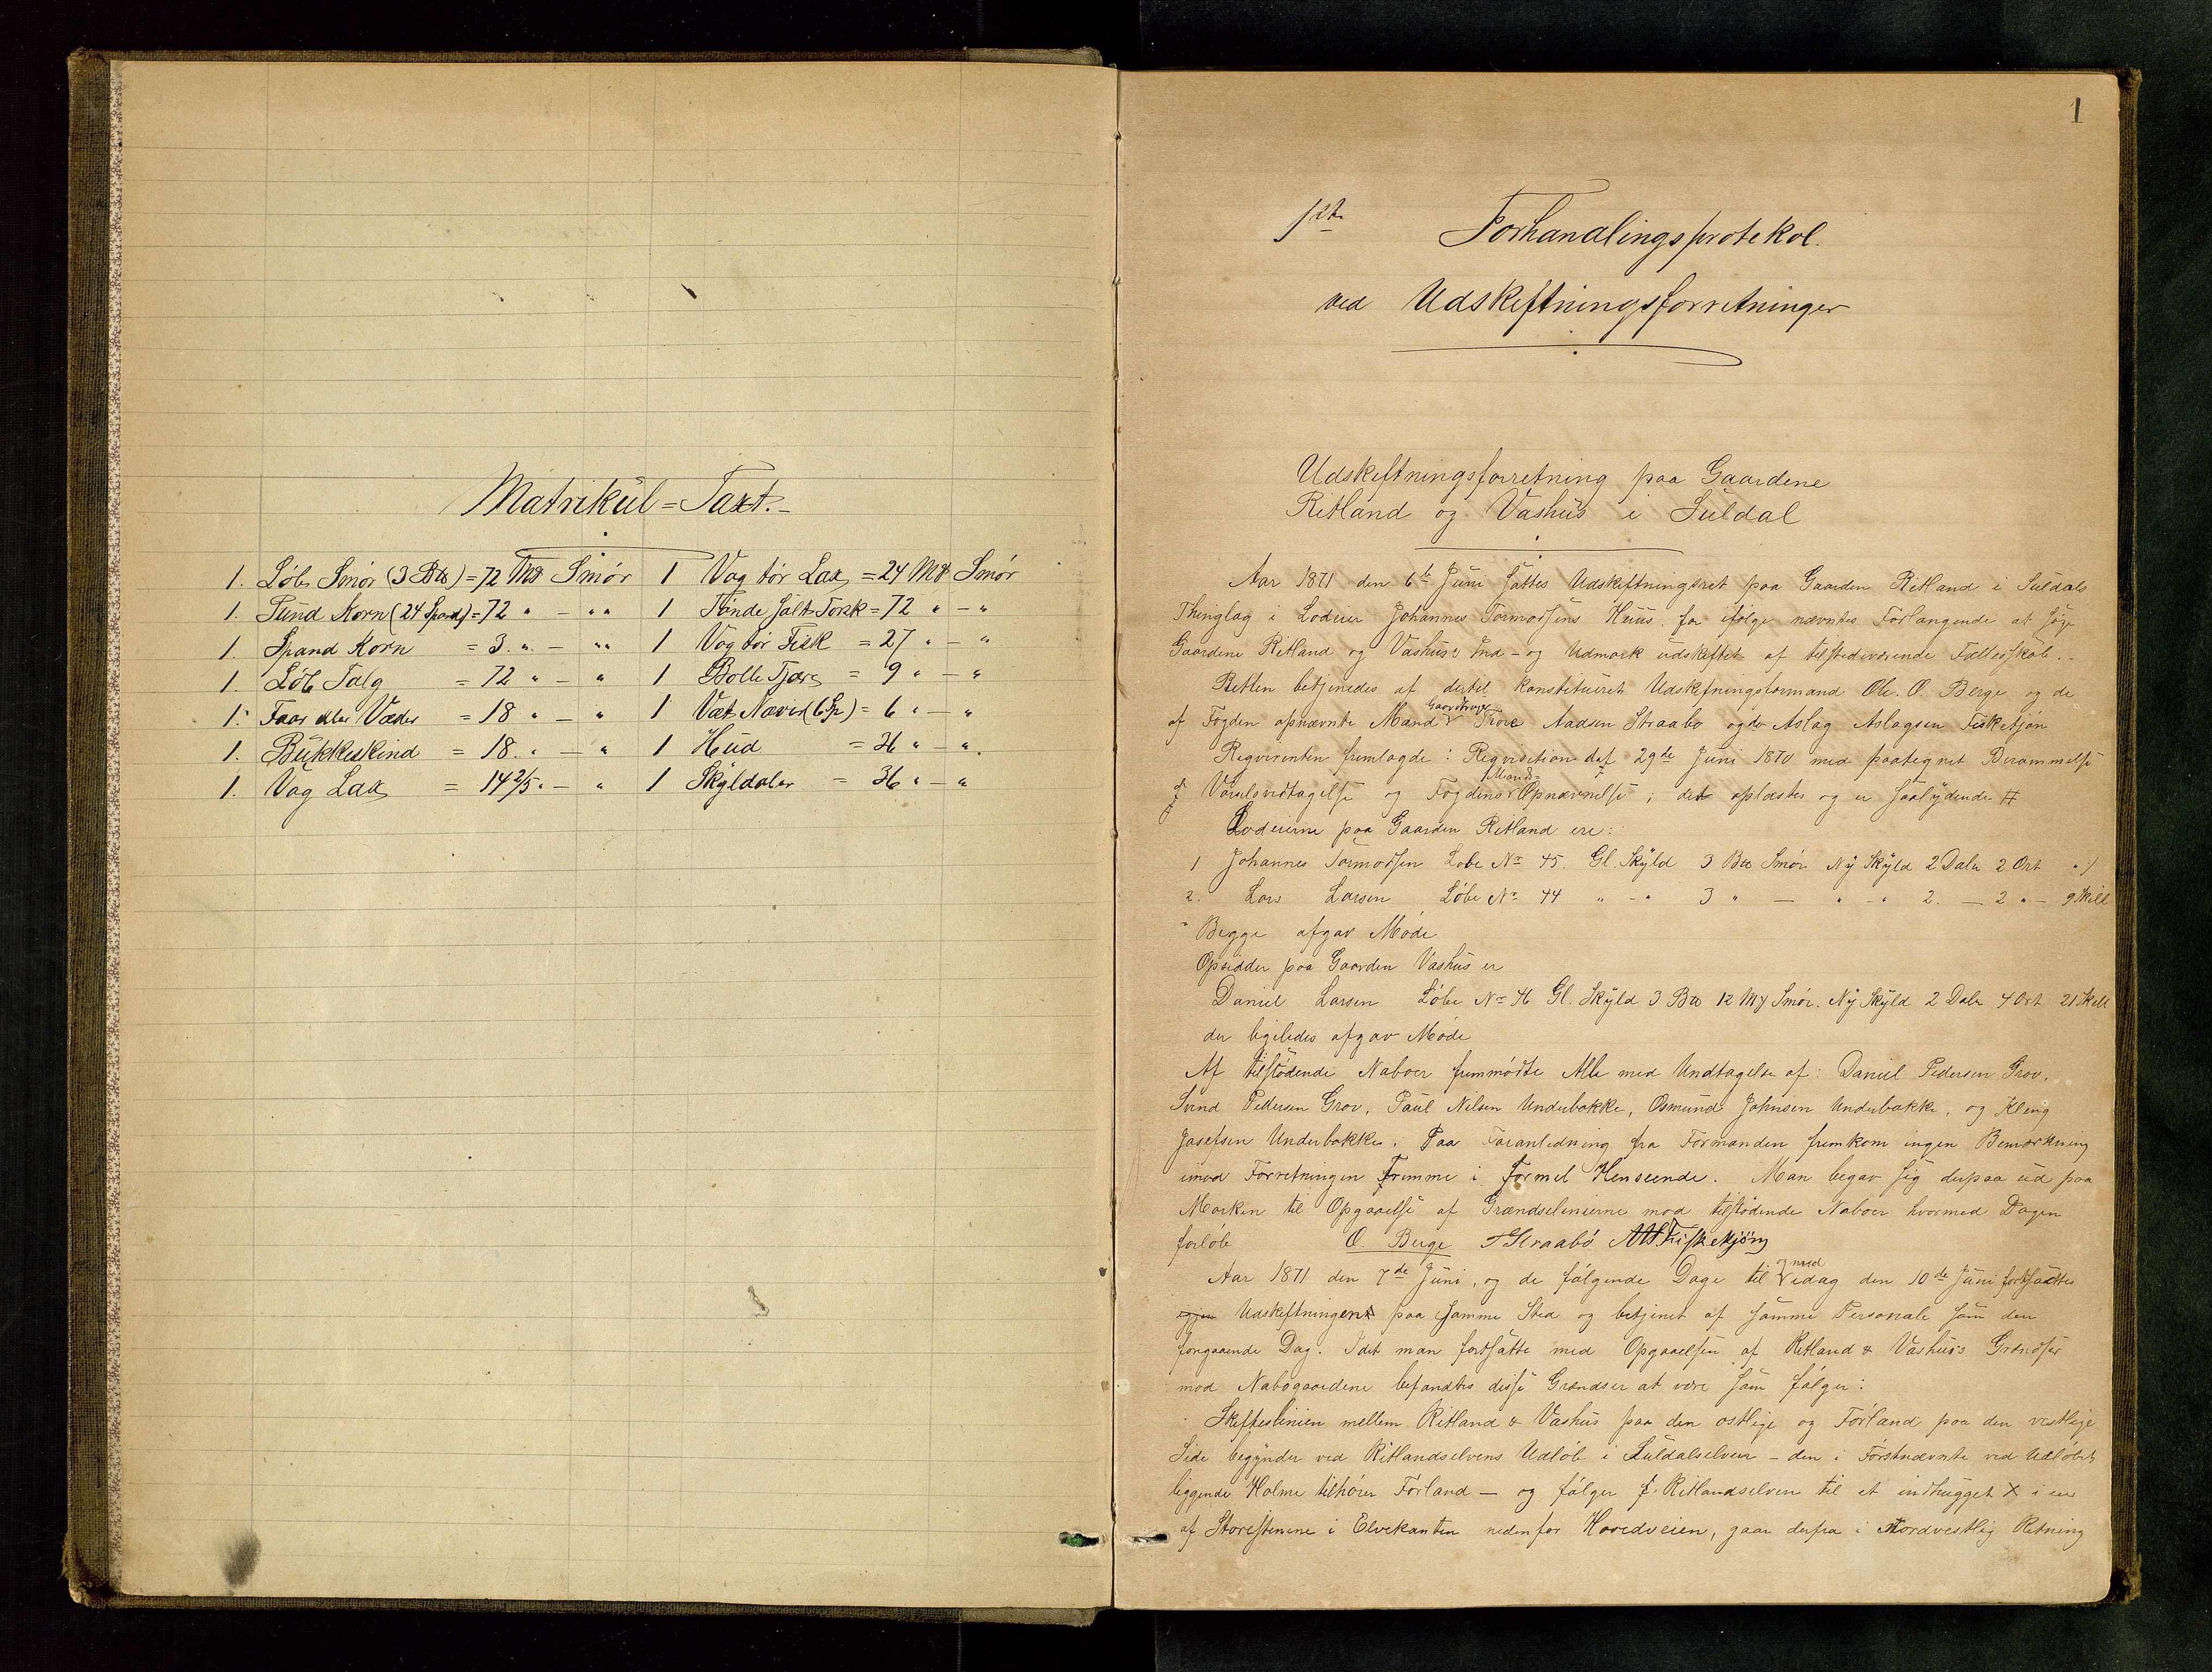 Matrikül = Taxt.
1. Løb Smør (3 B℔) = 72 Mk Smør
1. Pund Korn (24 Spand) = 72 " — "
1. Spand Korn = 3 " — "
1. Løb Talg = 72 " — "
1. Faar eller Væder = 18 " — "
1. Bükkeskind = 18 " — "
1. Vog Lax = 14 2/5 " — "
1 Vog tør Lax = 24 Mk Smør
1 Tønde Salt Torsk = 72 " — "
1 Vog tør Fisk = 27 " — "
1 Bolle Tjære = 9 " — "
1 Væt Næver (6 Sp) = 6 " — "
1 Hud = 36 " — "
1 Skÿldaler = 36 " — "
1
1ste Forhandlingsprotokol.
ved Udskiftningsforretninger
Udskiftningsforretning paa Gaardene
Ritland og Vashus i Suldal
Aar 1871 den 6te Juni sattes Udskiftningsret paa Gaarden Ritland i Suldals
Thinglag i Lodeier Johannes Tormodsens Huus, for ifølge nævntes Forlangende at søge
Gaardene Ritland og Vashus's Ind- og Udmark udskiftet af tilstedeværende Fællesskab.
Retten betjenedes af dertil konstitueret Udskiftningsformand Ole O. Berge og de
af Fogden opnævnte Mænd Gaardbruger Tore Aadsen Straabø og do Aslag Aslagsen Fisketjøn
Reqvirenten fremlagde: Reqvisition daf 29de Juni 1870 med paategnet Berammelse
Varselsvedtagelse og Fogdens Mands-Opnævnelse; det oplæstes og er saalydende #
Lodeierne paa Gaarden Ritland ere:
1 Johannes Tormodsen Løbe No 45. Gl. Skÿld 3 B℔ Smør Nÿ Skÿld 2 Daler 2 Ort "
2. Lars Larsen Løbe No 44 " - " 3 " — " - " 2. — 2 " — 9 Skill
Begge afgav Møde
Opsidder paa Gaarden Vashus er
Daniel Larsen Løbe No 46 Gl. Skÿld 3 B℔ 12 Mk Smør. Nÿ Skÿld 2 Daler 4 Ort 21 Skill
der ligeledes afgav Møde
Af tilstødende Naboer fremmødte Alle med Undtagelse af: Daniel Pedersen Grov,
Svend Pedersen Grov, Paul Nilsen Underbakke, Osmund Johnsen Underbakke, og Kleng
Josefsen Underbakke. Paa Foranledning fra Formanden fremkom ingen Bemærkning
imod Forretningen Fremme i Formel Henseende. Man begav sig derpaa ud paa
Marken til Opgaaelse af Grændselinierne mod tilstødende Naboer hvormed Dagen
forløb O. Berge T Straabø AA Fiskekjøn
Aar 1871 den 7de Juni, og de følgende Dage til og med idag den 10de Juni fortsattes
Udskiftningen paa samme Sted og betjenet af samme Personale som den
forgaaende Dag. Idet man fortsatte med Opgaaelsen af Ritland & Vashus's Grændser
mod Nabogaardene befandtes disse Grændser at være som følger:
Skiftelinien mellem Ritland & Vashus paa den østlige og Førland paa den vestlige
Side begynder ved Ritlandselvens Udløb i Suldalselven - den i Førstnævnte ved Udløbet
liggende Holme tilhører Førland — og følger Ritlandselven til et indhugget X i en
af Storstenene i Elvekanten nedenfor Hovedveien, gaar derfra i Nordvestlig Retning